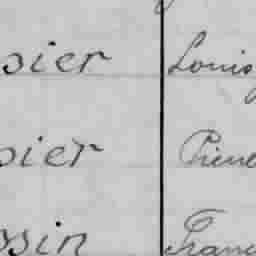 sier Louis
sier Pierre
ssin Franç